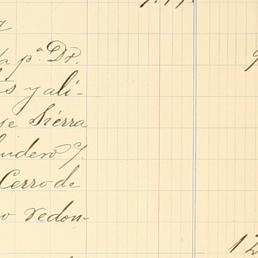 a pª Dr.
s y ali-
je Sierra
ndero y
Cerro de
o redon-
12